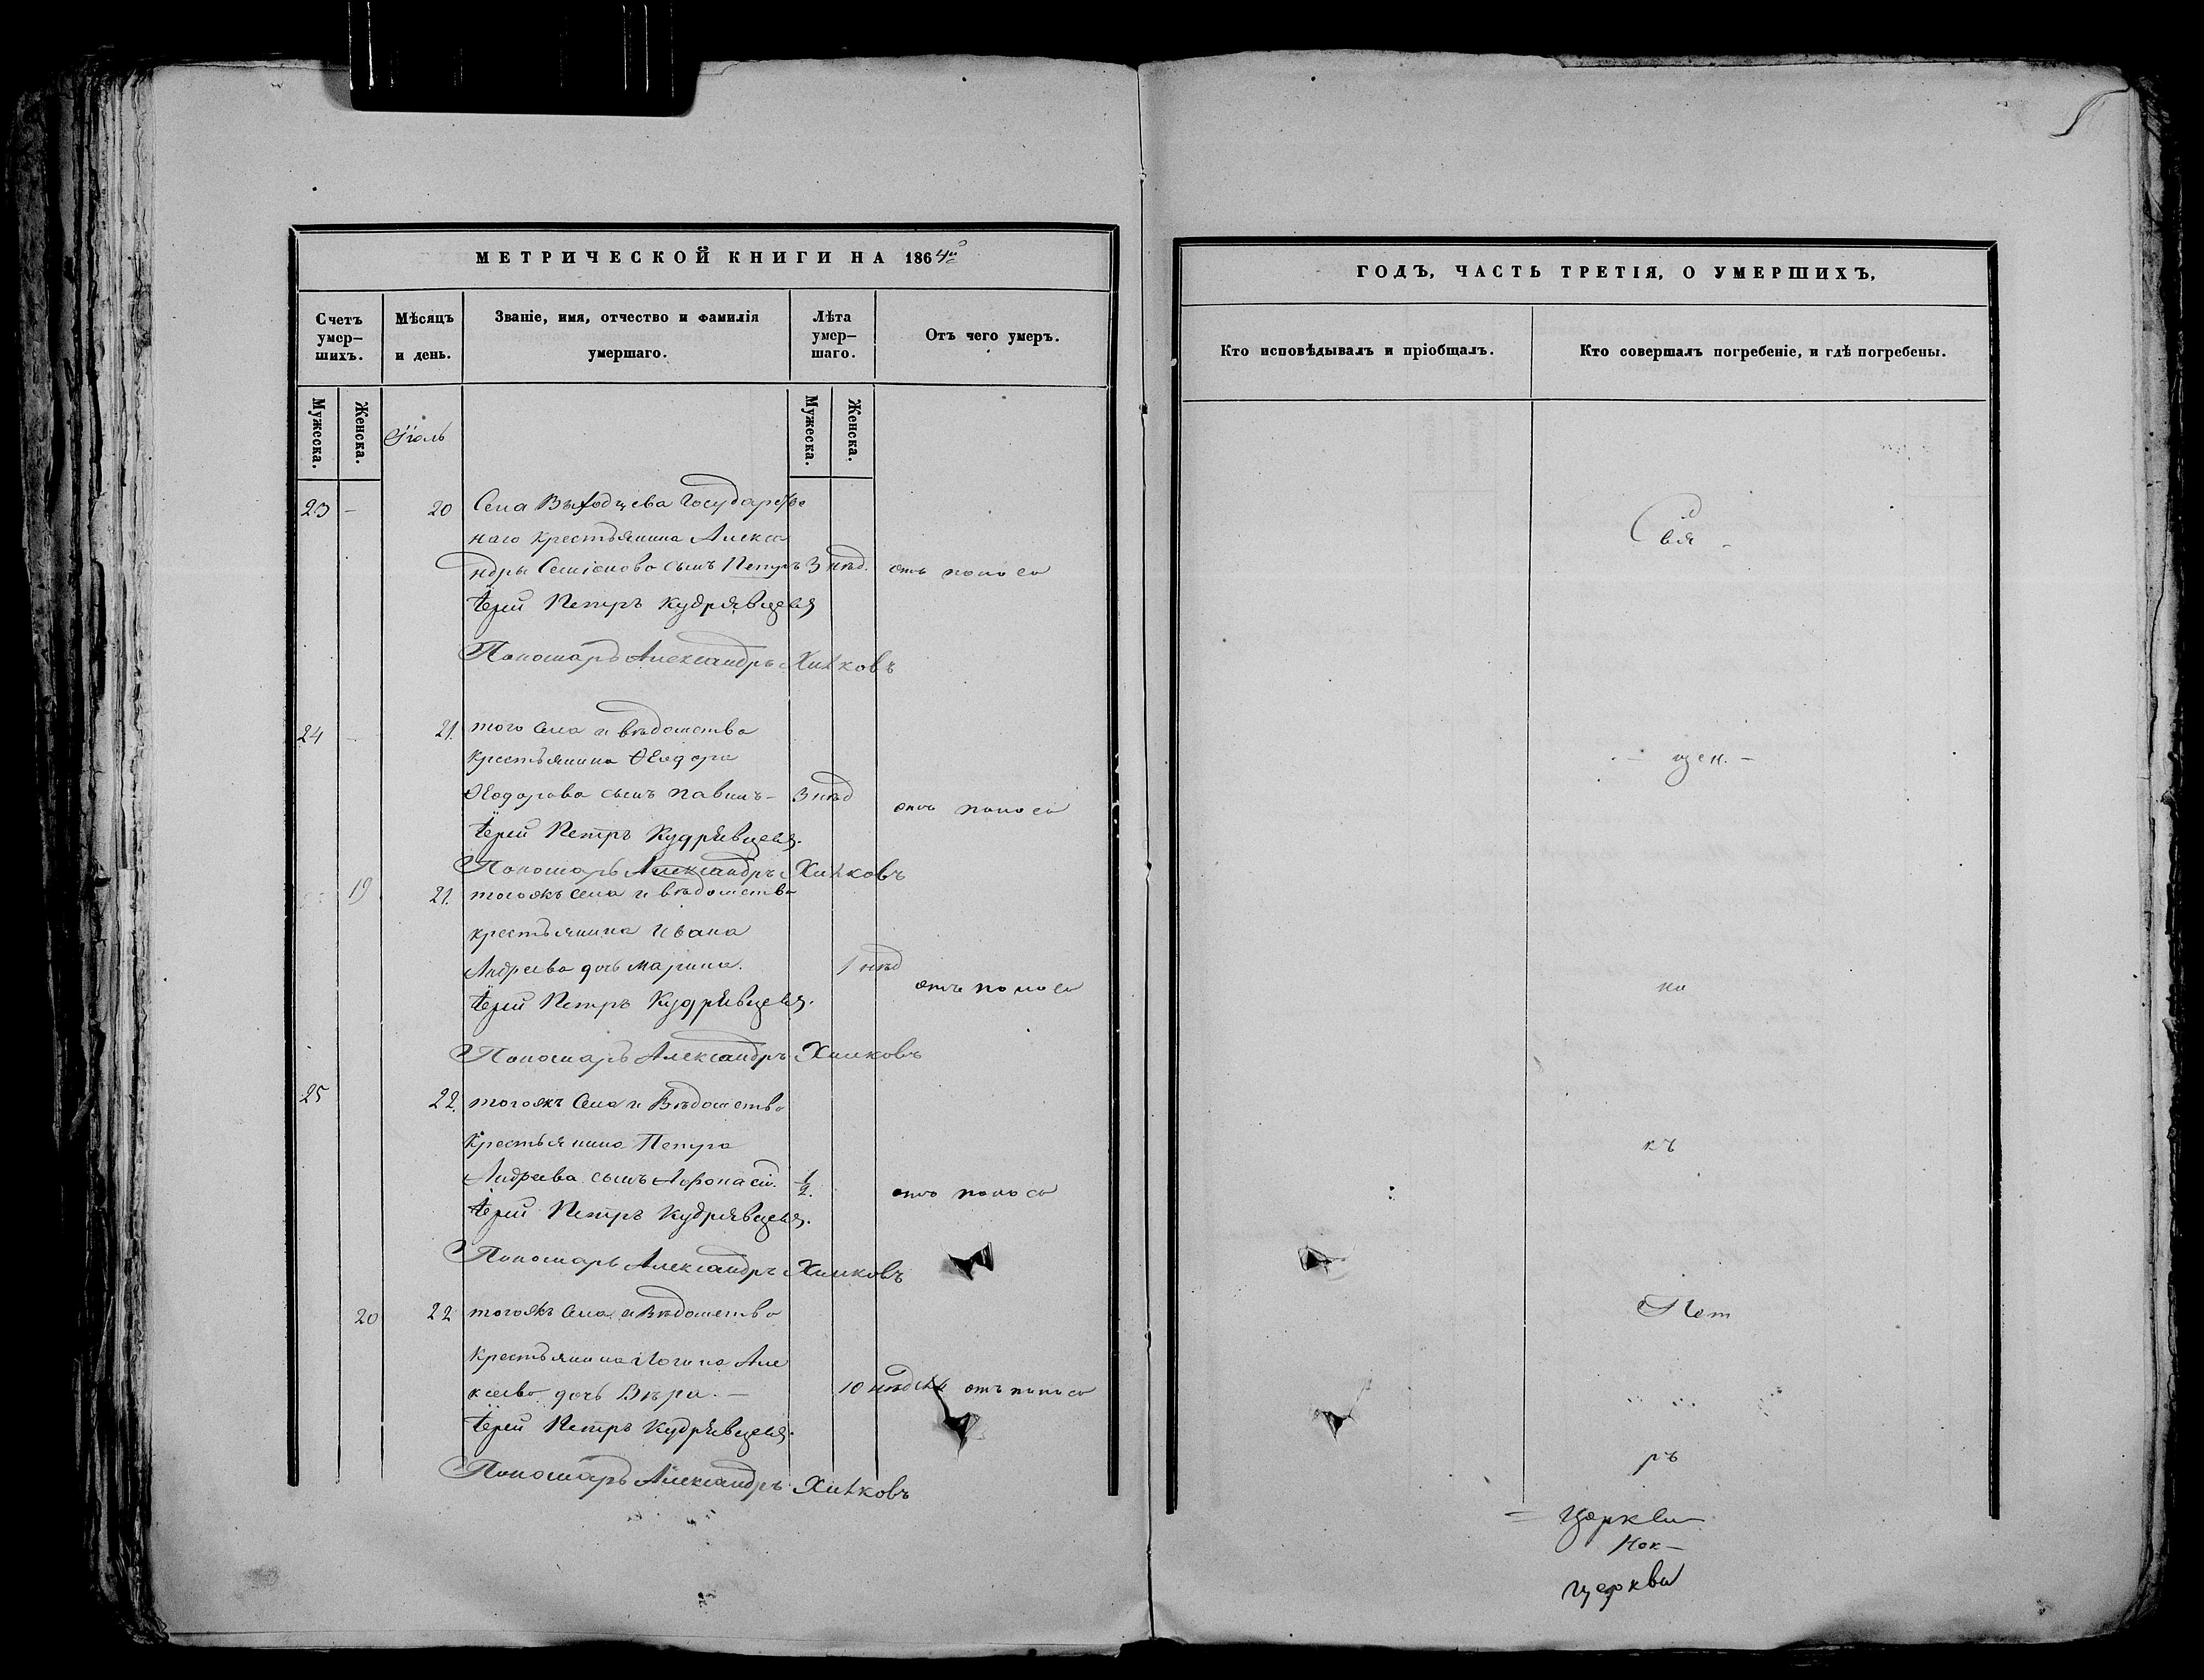 МЕТРИЧЕСКОЙ КНИГИ НА 1864й
Счетъ умер-шихъ.
Мѣсяцъ и день.
Званіе, имя, отчество и фамилія умершаго.
Лѣта умер-шаго.
Отъ чего умеръ.
Мужеска.
Женска.
Мужеска.
Женска.
Іюль
23 - 20 Села Выходцева Государстве
наго крестьянина Алекса
ндра Семіонова сынъ Петръ 3 нѣд. отъ поноса
Іерей Петръ Кудрявцевъ
Пономарь Александръ Хилковъ
24 - 21. того села и вѣдомства
крестьянина Ѳеодора
Ѳеодорова сынъ Павилъ - 3 нѣд отъ поноса
Іерей Петръ Кудрявцевъ.
Пономарь Александръ Хилковъ
19 21. тогожъ села и вѣдомства
крестьянина Ивана
Андреева дочь Марина. 1 нѣд отъ поноса
Іерей Петръ Кудрявцевъ.
Пономарь Александръ Хилковъ
25 22. тогожъ Села и Вѣдомства
Крестьянина Петра
Андреева сынъ Афонасій. 1/2. отъ поноса
Іерей Петръ Кудрявцевъ.
Пономарь Александръ Хилковъ
20 22 тогожъ Села и Вѣдомства
Крестьянина Логина Але
ксеева дочь Вѣра. - 10 отъ поноса
Іерей Петръ Кудрявцевъ.
Пономарь Александръ Хилковъ
ГОДЪ, ЧАСТЬ ТРЕТІЯ, О УМЕРШИХЪ,
Кто исповѣдывалъ и пріобщалъ.
Кто совершалъ погребеніе, и гдѣ погребены.
Свя -
- щен. -
но
къ
Пет
ръ
= Церкви
церкви